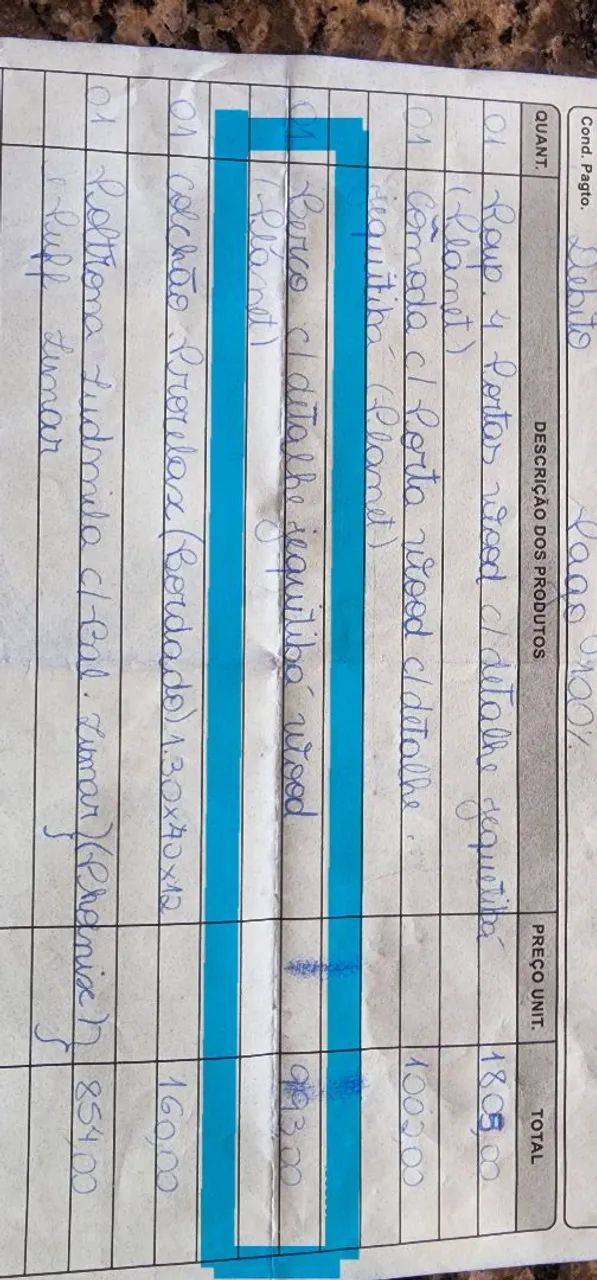 Cond. Pagto. Debito Pago 100%
QUANT. DESCRIÇÃO DOS PRODUTOS PREÇO UNIT. TOTAL
01 Roup. 4 Portas wood c/ detalhe jequetibá 1808,00
(Planet)
01 Cômoda c/ Porta wood c/ detalhe 1002,00
jequitibá (Planet)
01 Berço c/ detalhe jequitibá wood 993,00
(Planet)
01 Colchão Prorelax (Bordado) 1.30x70x12 160,00
01 Poltrona Ludmila c/ Bal. Lunar) (Phoenix) } 854,00
Puff Lunar }